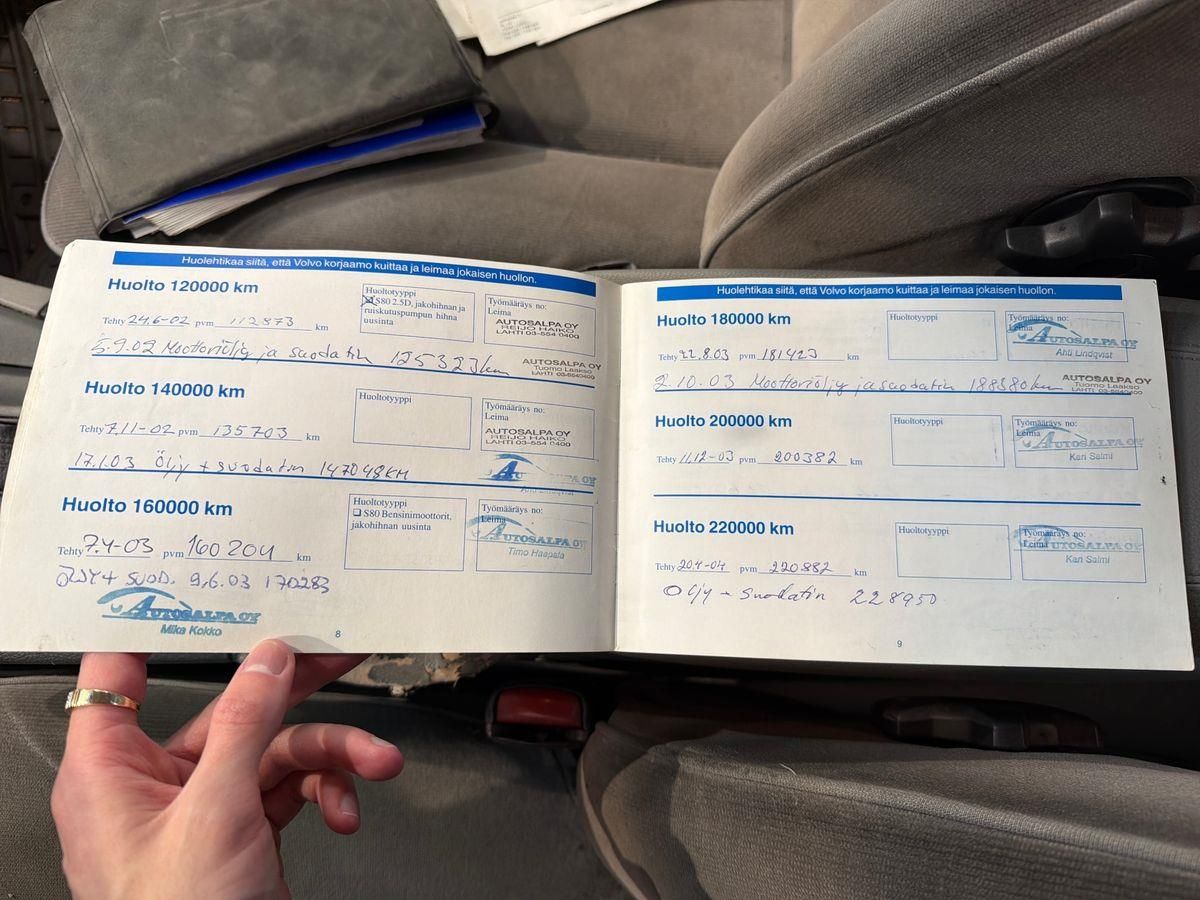 Huolehtikaa siitä, että Volvo korjaamo kuittaa ja leimaa jokaisen huollon.
Huolto 120000 km
Huoltotyyppi
S80 2.5D, jakohihnan ja
ruiskutuspumpun hihna
uusinta
Työmääräys no:
Leima
AUTOSALPA OY
REIJO HAIKO
LAHTI 03-554 0400
Tehty 24.6-02 pvm 112873 km
5.9.02 Moottoriöljy ja suodatin 125323km
AUTOSALPA OY
Tuomo Laakso
LAHTI 03-5540400
Huolto 140000 km
Huoltotyyppi
Työmääräys no:
Leima
AUTOSALPA OY
REIJO HAIKO
LAHTI 03-554 0400
Tehty 7.11-02 pvm 135703 km
17.1.03 Öljy + suodatin 147048KM
Huolto 160000 km
Huoltotyyppi
S80 Bensinimoottorit,
jakohihnan uusinta
Työmääräys no:
Leima
AUTOSALPA OY
Timo Haapala
Tehty 7.4-03 pvm 160204 km
ÖLJY + SUOD. 9.6.03 170283
AUTOSALPA OY
Mika Kokko
8
Huolehtikaa siitä, että Volvo korjaamo kuittaa ja leimaa jokaisen huollon.
Huolto 180000 km
Huoltotyyppi
Työmääräys no:
Leima
AUTOSALPA OY
Ahti Lindqvist
Tehty 22.8.03 pvm 181423 km
2.10.03 Moottoriöljy ja suodatin 188380km
AUTOSALPA OY
Tuomo Laakso
Huolto 200000 km
Huoltotyyppi
Työmääräys no:
Leima
AUTOSALPA OY
Kari Salmi
Tehty 11.12-03 pvm 200382 km
Huolto 220000 km
Huoltotyyppi
Työmääräys no:
Leima
AUTOSALPA OY
Kari Salmi
Tehty 20.4-04 pvm 220882 km
Öljy + suodatin 228950
9